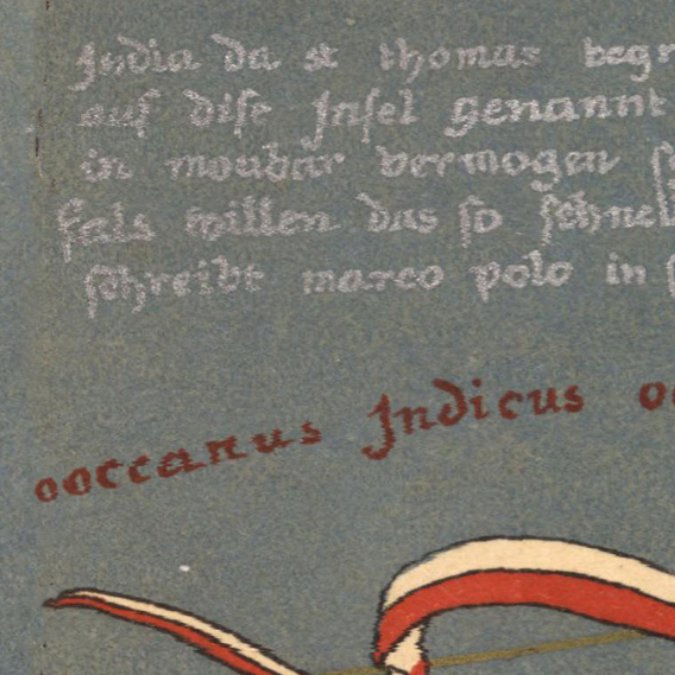 India da st thomas begr
auf dise Insel genannt
in moubar vermogen
fels willen das so schnel
schreibt marco polo in
ooccanus Indicus